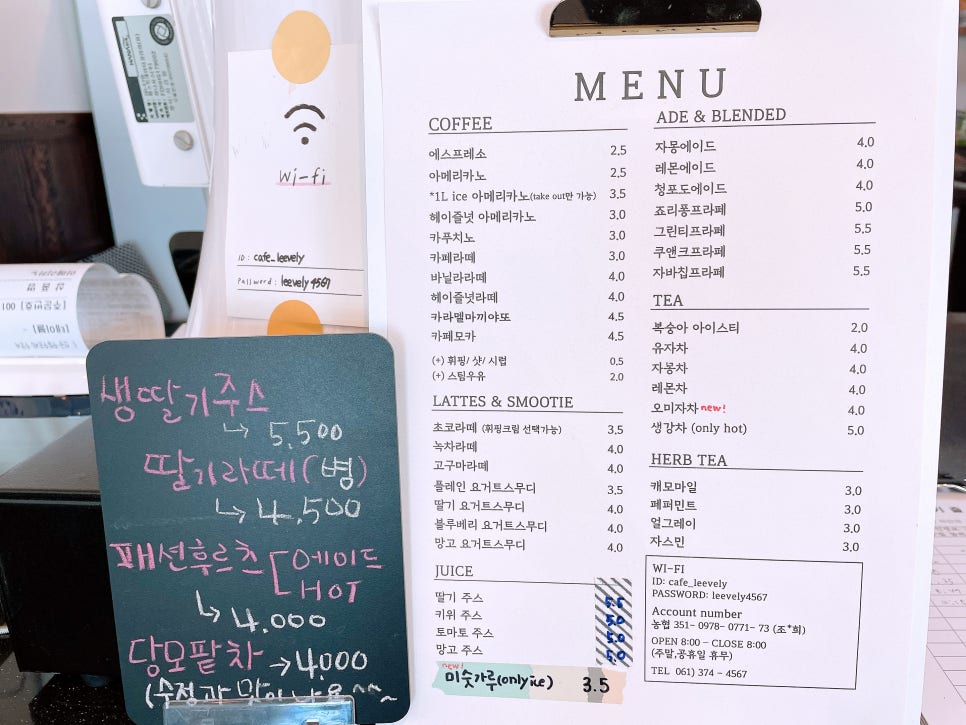 Wi-fi
ID : cafe_leevely
Password : leevely 4567
생딸기주스
↳ 5,500
딸기라떼(병)
↳ 4,500
패션후르츠 [에이드
HOT
↳ 4.000
당모팥차 → 4,000
(수정과 맛이 나용^^~
MENU
COFFEE
에스프레소 2.5
아메리카노 2.5
*1L ice 아메리카노(take out만 가능) 3.5
헤이즐넛 아메리카노 3.0
카푸치노 3.0
카페라떼 3.0
바닐라라떼 4.0
헤이즐넛라떼 4.0
카라멜마끼야또 4.5
카페모카 4.5
(+) 휘핑/ 샷/ 시럽 0.5
(+) 스팀우유 2.0
LATTES & SMOOTIE
초코라떼 (휘핑크림 선택가능) 3.5
녹차라떼 4.0
고구마라떼 4.0
플레인 요거트스무디 3.5
딸기 요거트스무디 4.0
블루베리 요거트스무디 4.0
망고 요거트스무디 4.0
JUICE
딸기 주스 5.5
키위 주스 5.0
토마토 주스 5.0
망고 주스 5.0
new!
미숫가루(only ice) 3.5
ADE & BLENDED
자몽에이드 4.0
레몬에이드 4.0
청포도에이드 4.0
죠리퐁프라페 5.0
그린티프라페 5.5
쿠앤크프라페 5.5
자바칩프라페 5.5
TEA
복숭아 아이스티 2.0
유자차 4.0
자몽차 4.0
레몬차 4.0
오미자차 new! 4.0
생강차 (only hot) 5.0
HERB TEA
캐모마일 3.0
페퍼민트 3.0
얼그레이 3.0
자스민 3.0
WI-FI
ID: cafe_leevely
PASSWORD: leevely4567
Account number
농협 351- 0978- 0771- 73 (조*희)
OPEN 8:00 – CLOSE 8:00
(주말,공휴일 휴무)
TEL 061) 374 – 4567
[주문번호] 001
[테이블] -